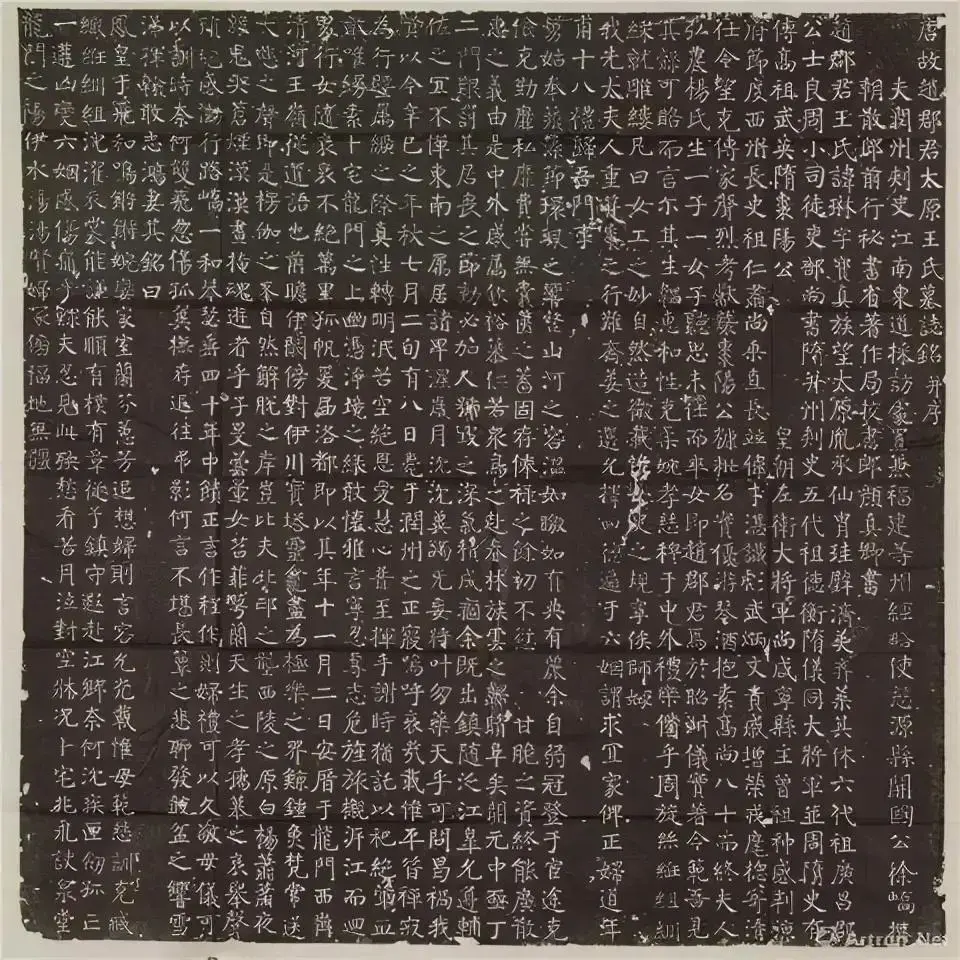 唐故趙郡君太原王氏墓誌銘并序
夫潤州刺史江南東道採訪處置兼福建等州經略使慈源縣開國公徐嶠撰
朝散郎前行秘書省著作局校書郎顏真卿書
趙郡君王氏諱琳字寶真族望太原胤承仙胄珪辟濟美齊葉其休六代祖廣昌郡
公士良周小司徒吏部尚書隋并州刺史五代祖德衡隋儀同大將軍並周隋史有
傳高祖武英隋棗陽公皇朝左衛大將軍尚咸寧縣主曾祖神感判德
府節度西州長史祖仁肅尚乘直長並偉才湛識烈武炳文貴戚增榮我慶
任令望克傳家聲烈考鼎襲棗陽公名賓優游琴酒抱素高尚八十而終夫人
弘農楊氏生一子一女子聽思未仕而卒女即趙郡君焉於昭淑儀實著令範吾見
其緜可略而言尔其生和性克柔婉孝慈穆于中外禮樂備乎周旋絲紝組紃
綵就雕縷凡曰女工之妙自然造微藏史之規寧俟師姆
我先太夫人重之行難齊姜之選允擇四德遍于六姻謂求宜家俾正婦道年
甫十八禮歸吾門奉
舅姑奉蘋藻節環珮之響登山河之容溫如瞰如有典有度余自弱冠登于宦途克
儉克勤靡私靡費嘗無囊篋之蓄固存俸祿之餘初不紝甘脆之資終能廣散
惠之義由是中外感屬飲裕慕仁若衆鳥之赴春林族雲之阜矣開元中亟丁
二門艱訃其居喪之節動必加人號毀之深氣稍成痼余既出鎮隨泛江皐允毋輔
佐之宜不憚東南之屬居諸畢歲月沈沈將叶勿藥天乎可問曷禍我
賢以今辛巳之年秋七月二旬有八日薨于潤州之正寢嗚呼哀哉載惟平昔禪寂
為行曁屬纊之際真性轉明泯苦空絕恩愛慧心普至揮手謝時猶託以
敬唯緣素卜宅龍門之上幽憑淨境之緣敢懷雅言寧忍專志危旐旅櫬泝江而迴
男行女隨哀哀不絕萬里孤帆爰屆洛都即以其年十一月二日安厝于龍門西崗
清河王嶺從遺詔也前瞻伊闕傍對伊川寶塔靈龕盡為極樂之界鯨鐘魚梵常送
大悲之聲即是楞伽之峯自然解脫之岸豈比夫北邙之壟西陵之原白楊蕭蕭夜
後思哭蒼煙漠漠晝掩魂逝者乎子旻女苕菲蘭天生之孝孺慕之哀舉聲
所及感激行路嶠一和琴瑟垂四十年中饋正言作程作則婦禮可以久敬母儀可
以訓時奈何雙飛忽傷孤翼撫存退往弔影何言不堪長簟之悲聊發盆之響雪
涕揮翰敢忠鴻妻其銘曰
鳳皇于飛和鳴鏘鏘婉孌家室蘭芬蕙芳追想婦則言容允光載惟母範慈訓克臧
紝紃組浣濯衣裳能謙能順有模有章從子鎮守遐赴江鄉奈何沈疾匪孤三
一遭凶喪六姻感傷痛乎鰥夫忍見此殃愁看苦月泣對空牀況卜宅兆孔訣泉堂
龍門之陽伊水湯湯賢婦緜福地無疆
Artron.Net